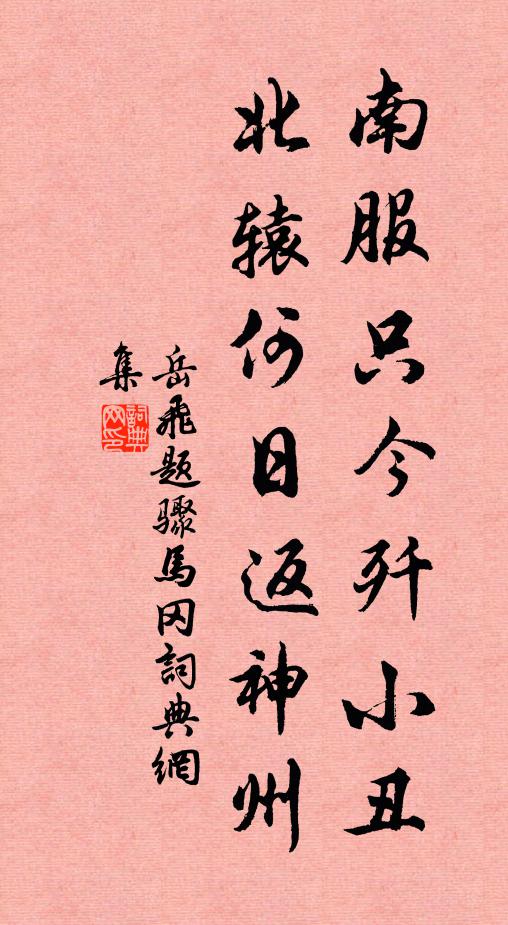 南服只今歼小丑
北辕何日返神州
岳飛题驟馬冈詞典網
集
詞典网印